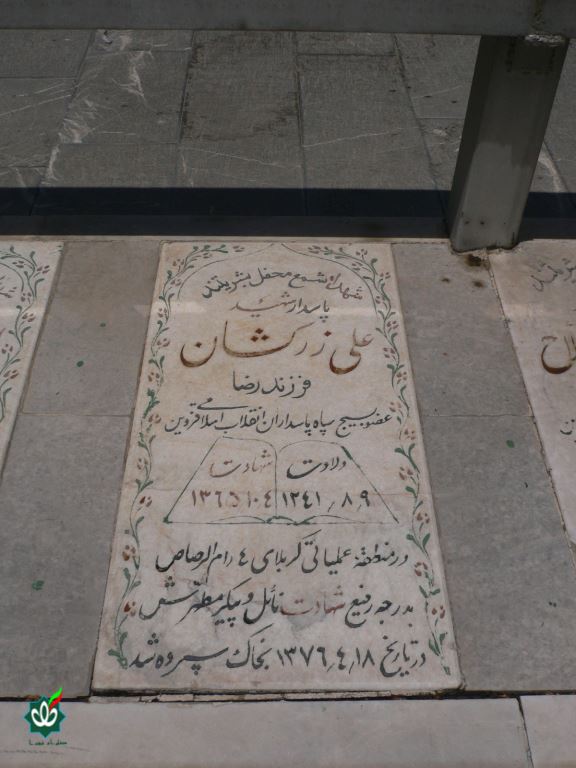 شهدا شمع محفل بشریتند
پاسدار شهید
علی زرکشان
فرزند رضا
عضو بسیج سپاه پاسداران انقلاب اسلامی قزوین
ولادت شهادت
۱۲۴۱٫۸٫۹ ۱۳۶۵٫۱۰٫۴
در منطقه عملیاتی کربلای ۴ ام الرصاص
بدرجه رفیع شهادت نائل و پیکر مطهرش
در تاریخ ۱۳۷۶٫۴٫۱۸ بخاک سپرده شد